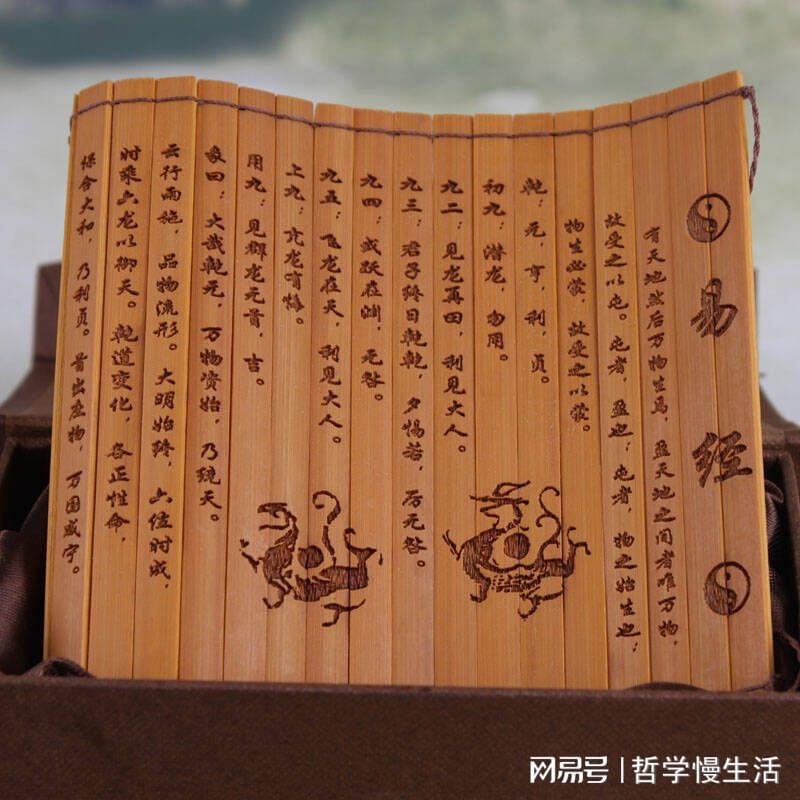 易经
有天地然后万物生焉，盈天地之间者唯万物，
故受之以屯。屯者，盈也；屯者，物之始生也；
物生必蒙，故受之以蒙。
乾，元，亨，利，贞。
初九：潜龙，勿用。
九二：见龙再田，利见大人。
九三：君子终日乾乾，夕惕若，厉无咎。
九四：或跃在渊，无咎。
九五：飞龙在天，利见大人。
上九：亢龙有悔。
用九：见群龙无首，吉。
彖曰：大哉乾元，万物资始，乃统天。
云行雨施，品物流形。大明始终，六位时成，
时乘六龙以御天。乾道变化，各正性命，
保合大和，乃利贞。首出庶物，万国咸宁。
网易号 | 哲学慢生活